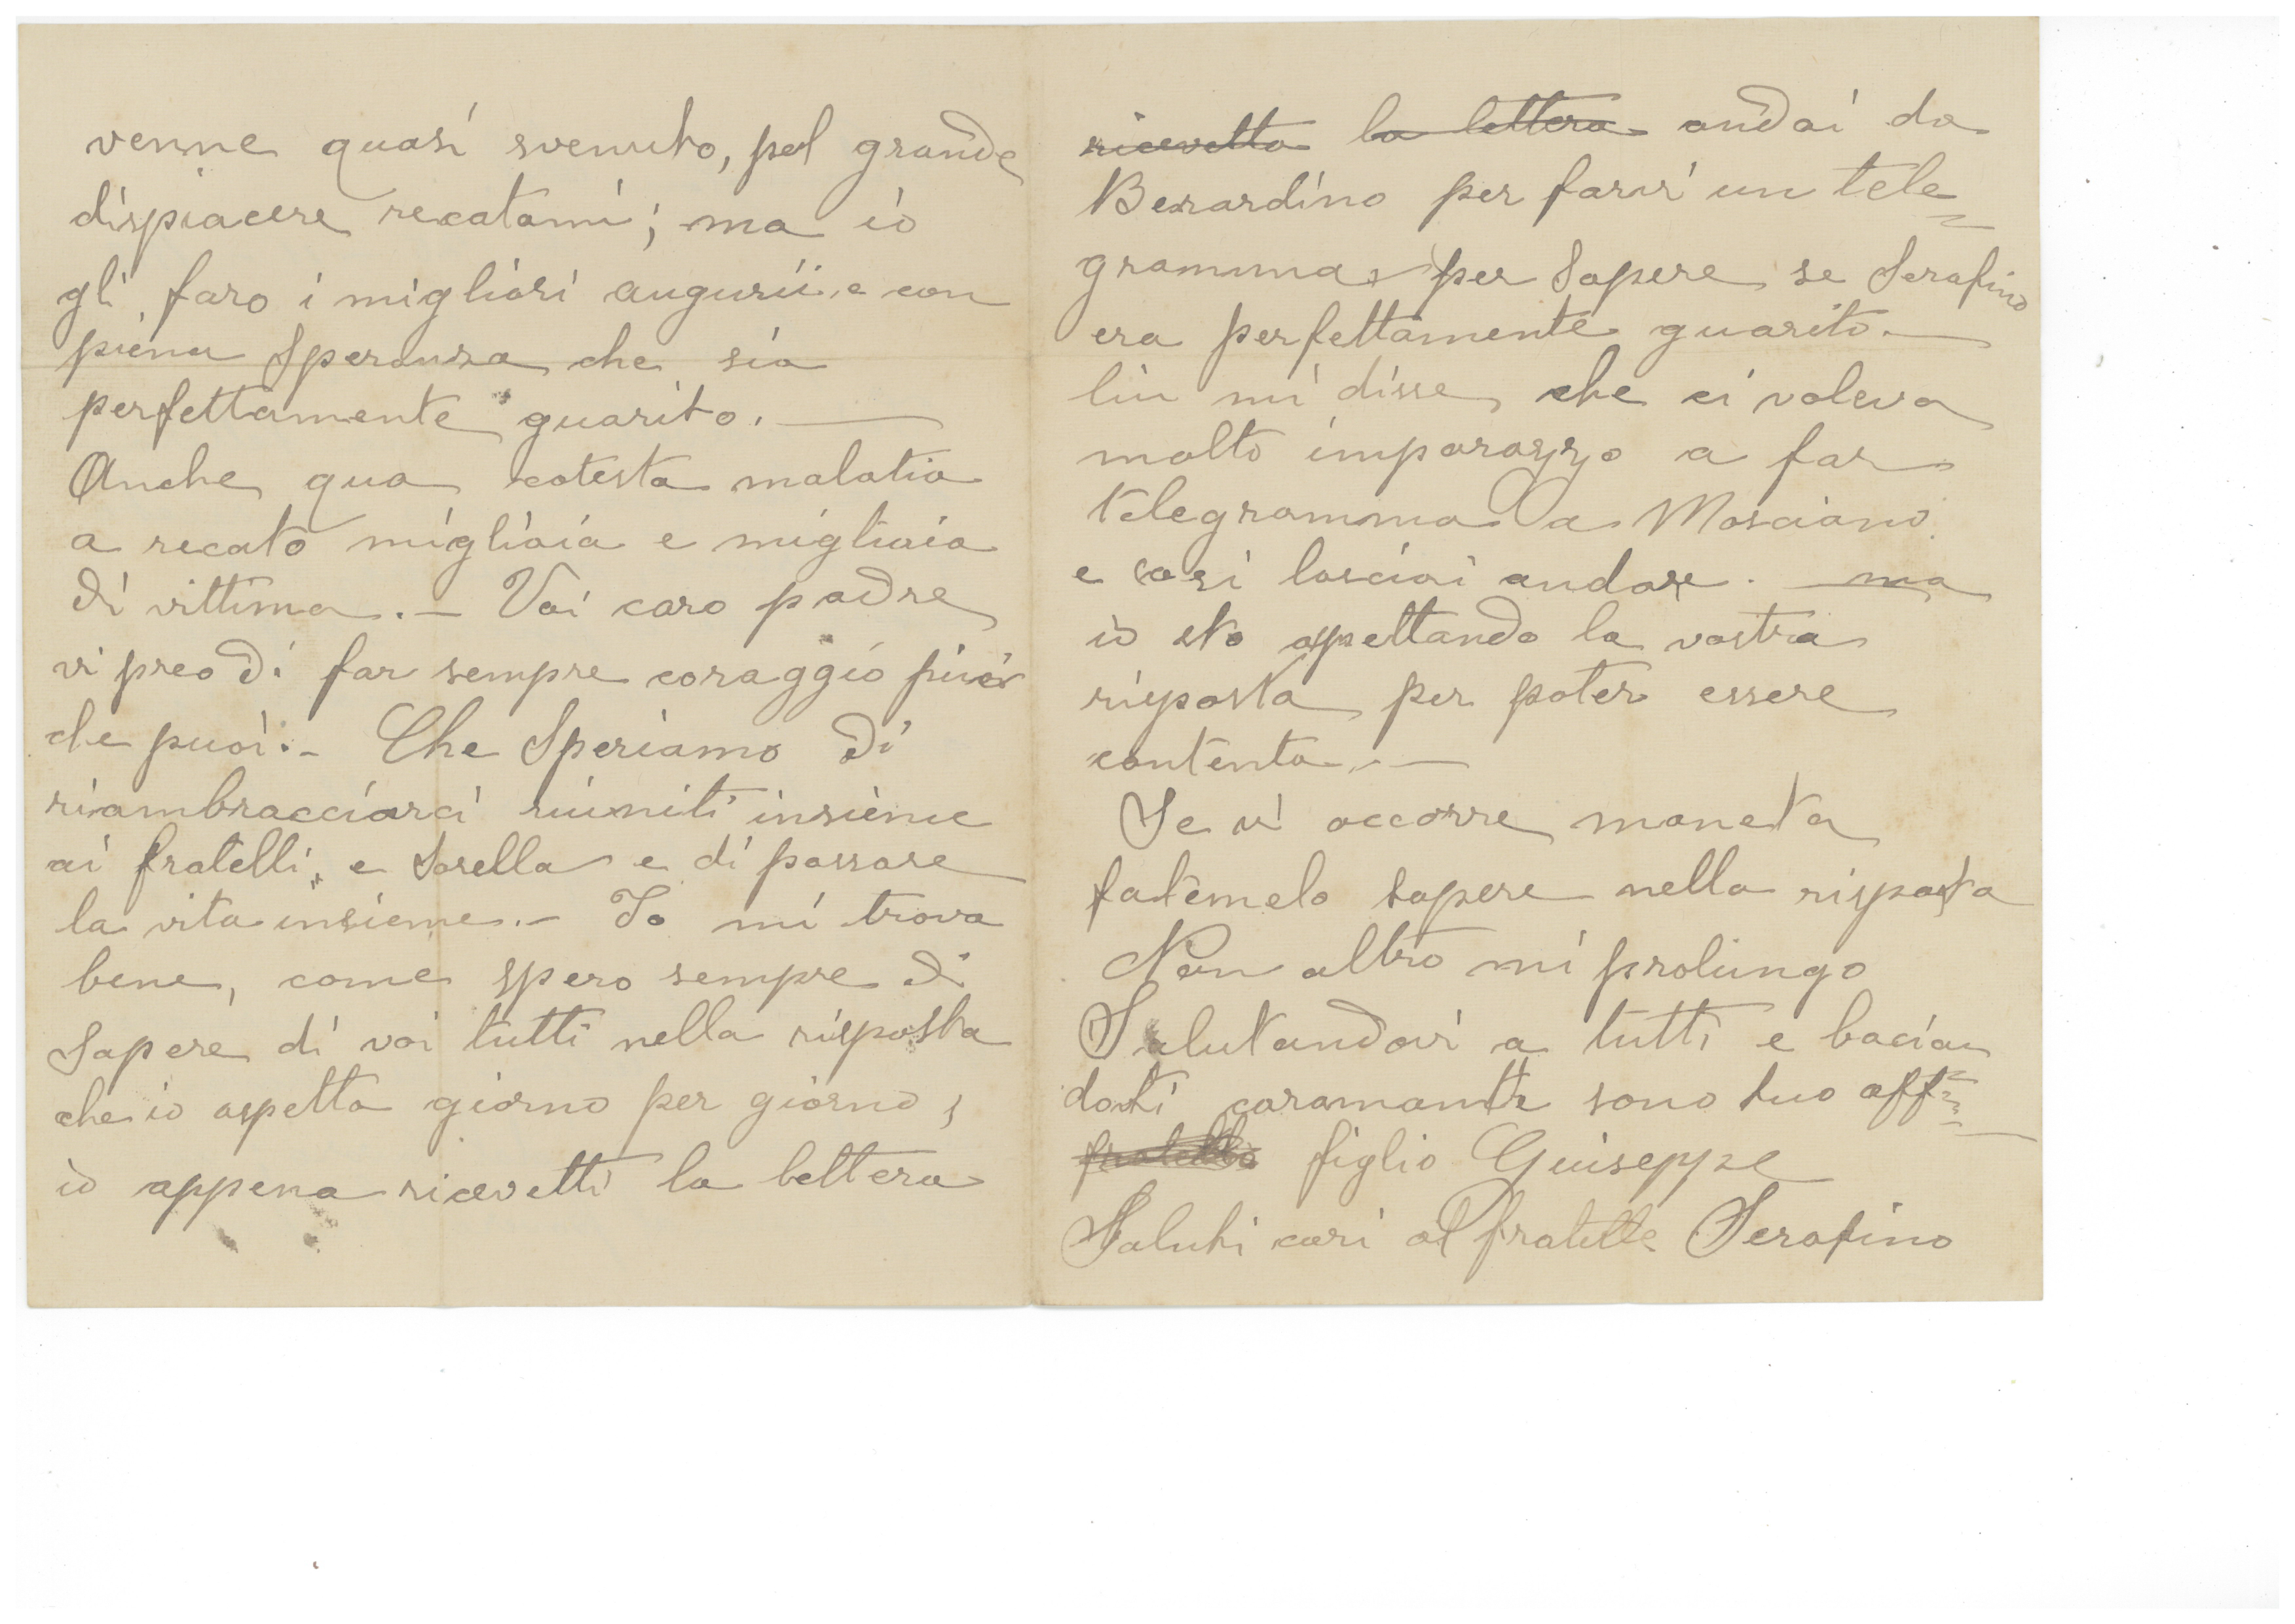 venne quasi svenuto, pel grande
dispiacere recatami; ma io
gli faro i migliori augurii e con
piena Speranza che sia
perfettamente guarito. —
Anche qua cotesta malatia
a recato migliaia e migliaia
di vittima. — Voi caro padre
vi preo di far sempre coraggio
che puoi. — Che Speriamo di
riambracciarci riuniti insieme
ai fratelli, e Sorella e di passare
la vita insieme. — Io mi trova
bene, come spero sempre di
Sapere di voi tutti nella risposta
che io aspetta giorno per giorno,
io appena ricevetti la lettera
ricevetta la lettera andai da
Berardino per farvi un tele=
gramma per Sapere se Serafino
era perfettamente guarito. —
lui mi disse che ci voleva
molto imparazzo a far
telegramma a Mosciano.
e cosi lasciai andare. — ma
io sto aspettando la vostra
risposta per poter essere
contento. —
Se vi occorre moneta
fatemelo sapere nella risposta
Non altro mi prolungo
Salutandovi a tutti e bacian
doti caramante sono tuo aff=
fratello figlio Guiseppe
Saluti cari al fratello Serafino